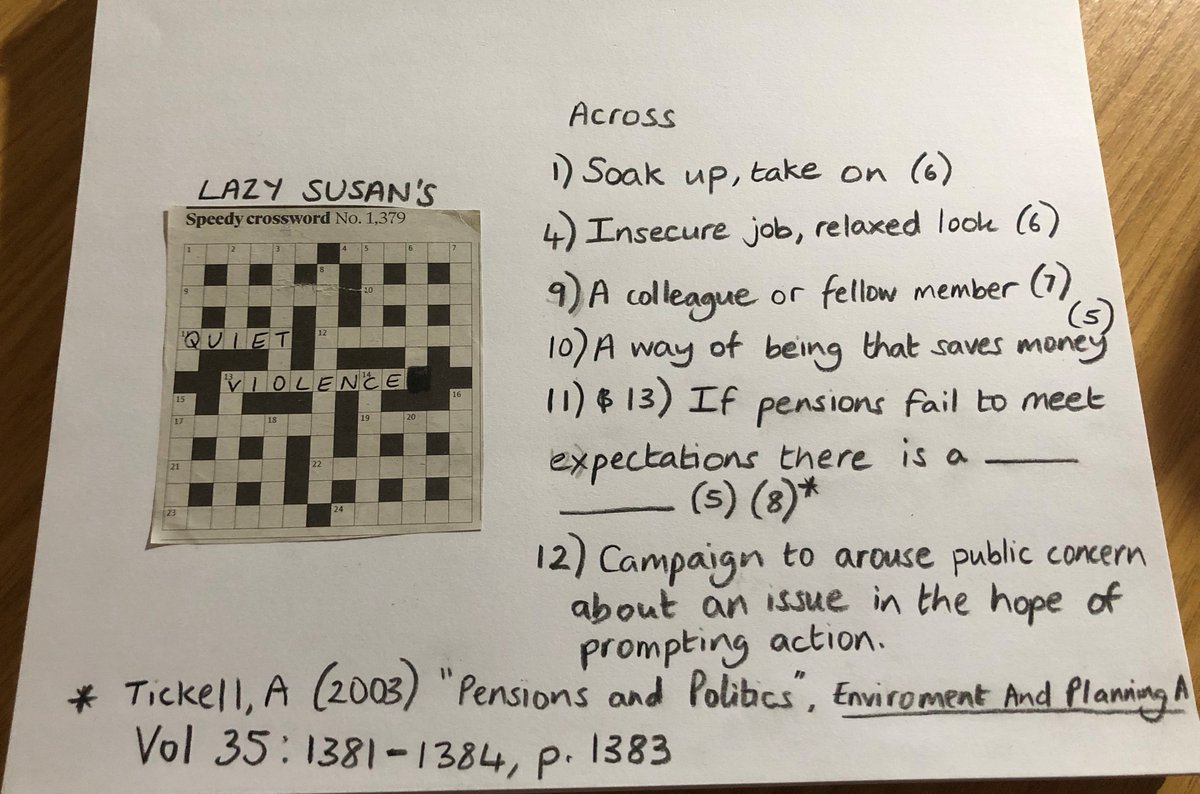 LAZY SUSAN'S
Speedy crossword No. 1,379
1 2 3 4 5 6 7
8
9 10
11 QUIET 12
13 VIOLEN 14 CE
15 16
17 18 19 20
21 22
23 24
Across
1) Soak up, take on (6)
4) Insecure job, relaxed look (6)
9) A colleague or fellow member (7)
10) A way of being that saves money (5)
11) & 13) If pensions fail to meet
expectations there is a ____
____ (5) (8)*
12) Campaign to arouse public concern
about an issue in the hope of
prompting action.
* Tickell, A (2003) "Pensions and Politics", Enviroment And Planning A
Vol 35: 1381-1384, p. 1383